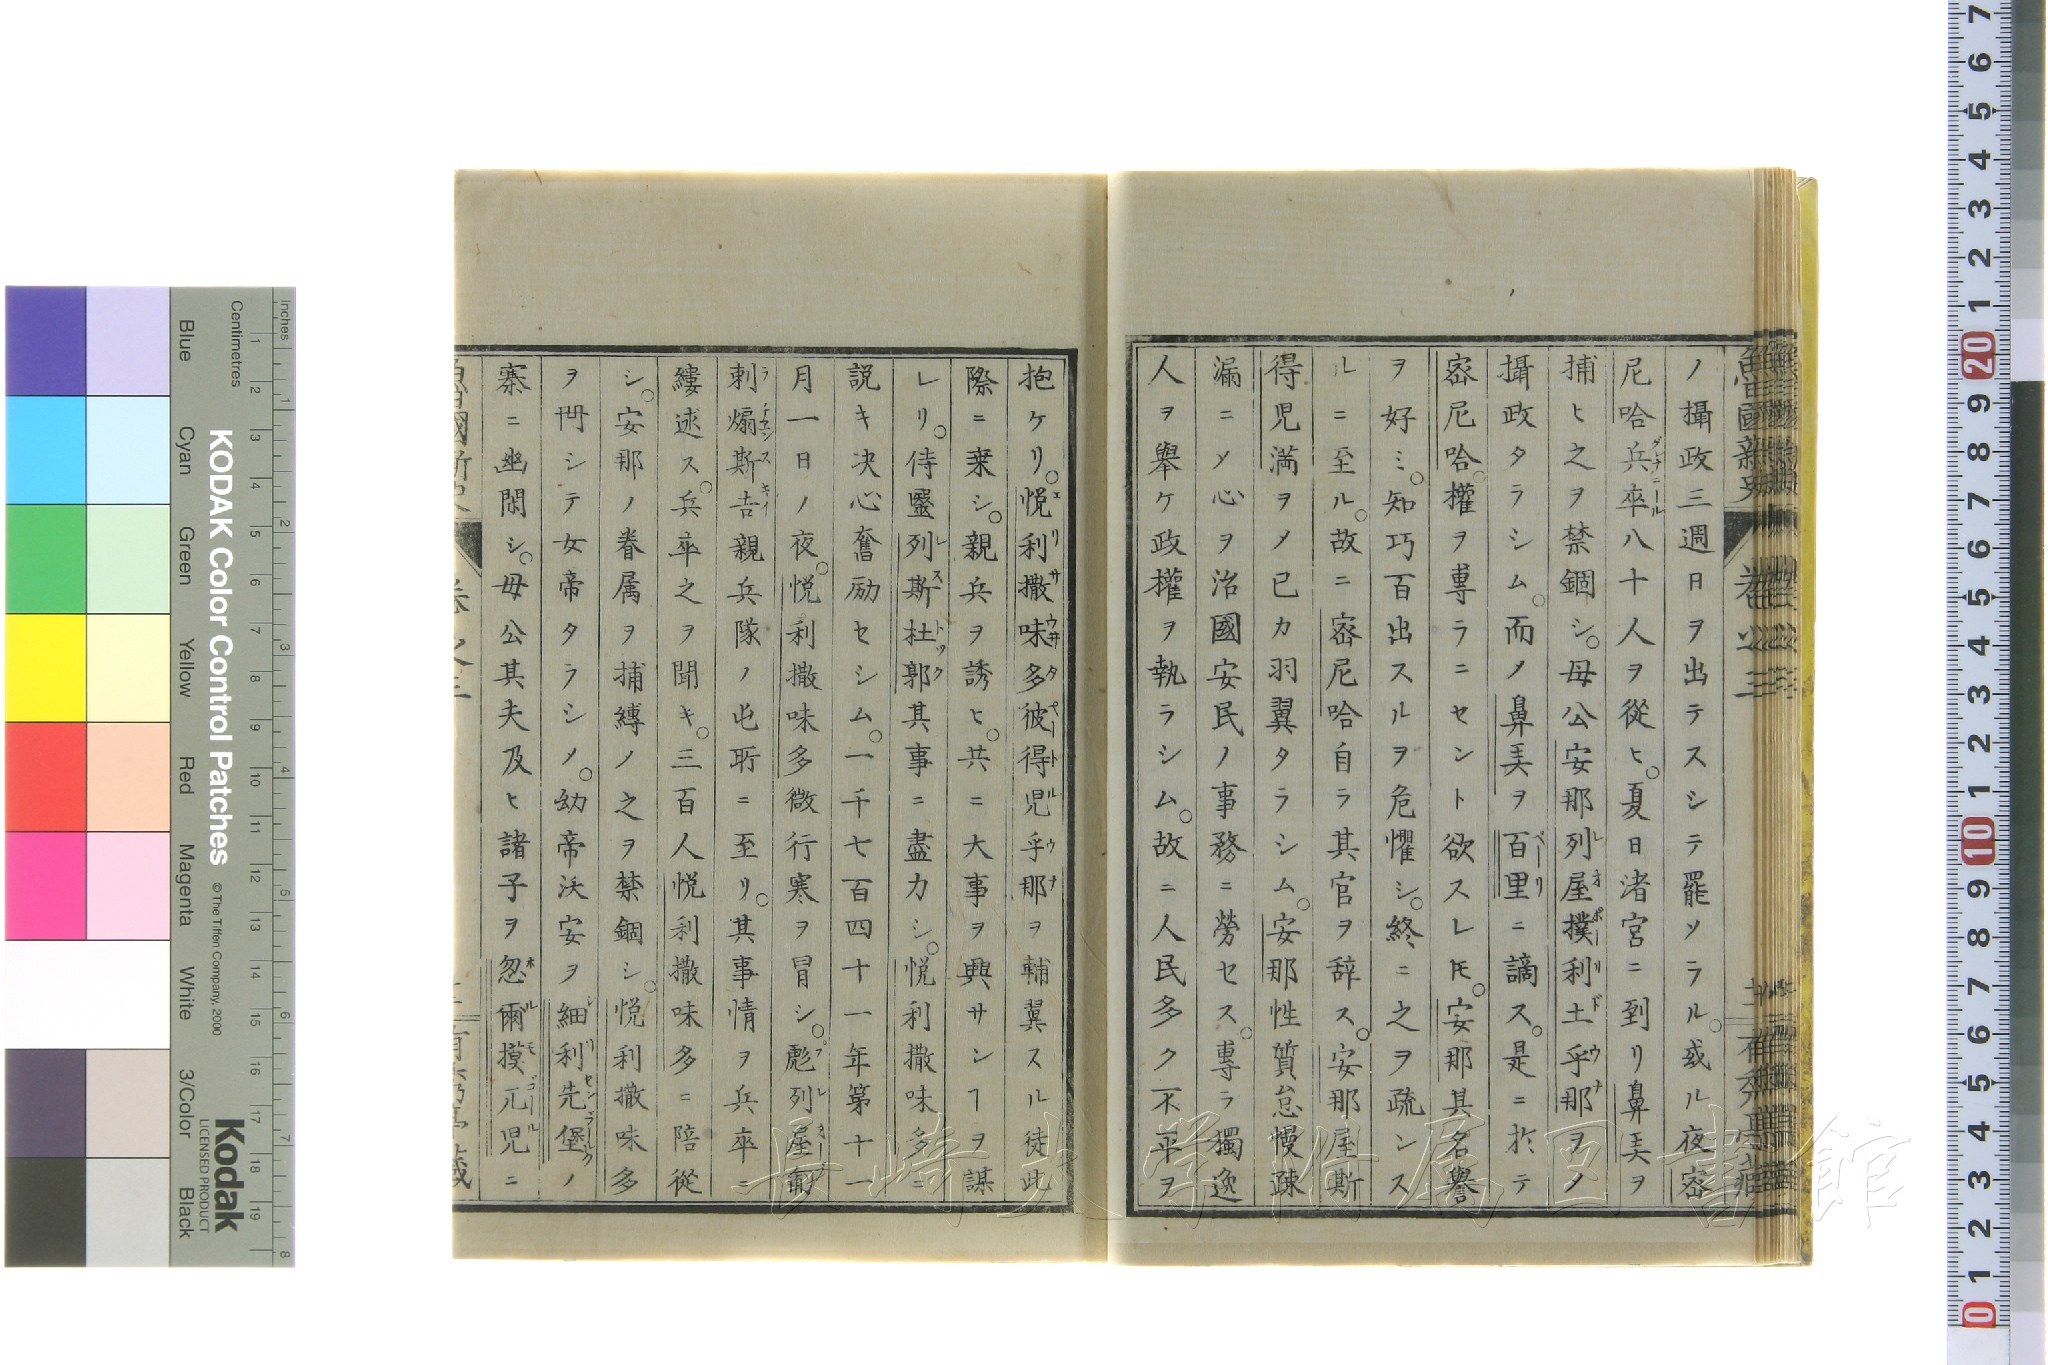 魯西國新史 卷之三
ノ攝政三週日ヲ出テスシテ罷ソラル。或ル夜密
尼哈兵卒八十人ヲ從ヒ。夏日渚宮ニ到リ鼻美ヲ
捕ヒ之ヲ禁錮シ。母公安那列屋撲利土乎那ヲ〆
攝政タラシム。而ノ鼻美ヲ百里ニ謫ス。是ニ於テ
密尼哈權ヲ專ラニセント欲スレ𪜈。安那其名譽
ヲ好ミ。知巧百出スルヲ危懼シ。終ニ之ヲ疏ンス
ルニ至ル。故ニ密尼哈自ラ其官ヲ辞ス。安那屋斯
得児満ヲ〆已カ羽翼タラシム。安那性質怠慢疎
漏ニ〆心ヲ治國安民ノ事務ニ勞セス。專ラ獨逸
人ヲ舉ケ政權ヲ執ラシム。故ニ人民多ク不平ヲ
抱ケリ。悦利撒味多彼得児乎那ヲ輔翼スル徒此
際ニ乗シ。親兵ヲ誘ヒ。共ニ大事ヲ興サンヿヲ謀
レリ。侍醫列斯杜郭其事ニ盡力シ。悦利撒味多ニ
説キ决心奮励セシム。一千七百四十一年第十一
月一日ノ夜。悦利撒味多微行寒ヲ冒シ。彪列屋爾
剌煽斯𠮷親兵隊ノ屯所ニ至リ。其事情ヲ兵卒ニ
縷述ス。兵卒之ヲ聞キ。三百人悦利撒味多ニ陪從
シ。安那ノ眷属ヲ捕縛ノ之ヲ禁錮シ。悦利撒味多
ヲ冊シテ女帝タラシ〆。幼帝沃安ヲ細利先堡ノ
寨ニ幽閉シ。母公其夫及ヒ諸子ヲ忽爾摸兀児ニ
KODAK Color Control Patches
© The Tiffen Company, 2000
Kodak
LICENSED PRODUCT
Centimetres
Inches
Blue
Cyan
Green
Yellow
Red
Magenta
White
3/Color
Black
長崎大学附属図書館